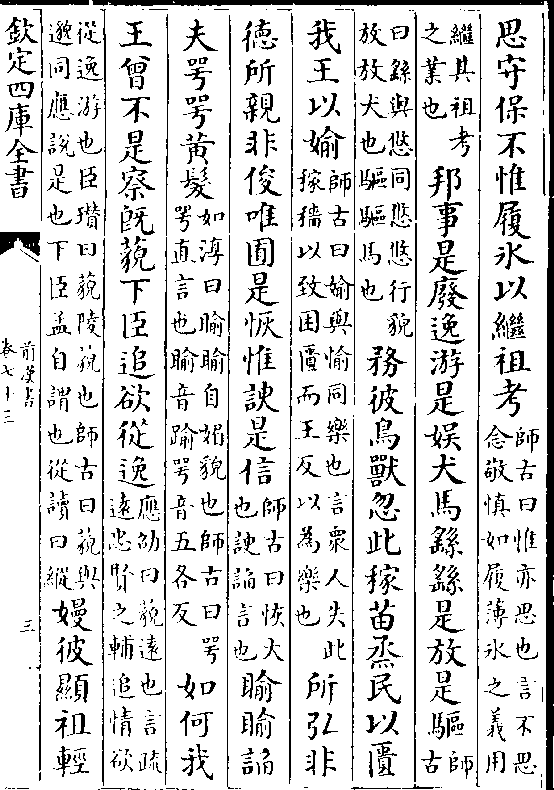 思守保不惟履氷以繼祖考師古曰惟亦思也言不思念敬慎如履薄氷之義用
繼其祖考之業也邦事是廢逸游是娯犬馬繇繇是放是驅師古
曰繇與悠同悠悠行貌放放犬也驅驅馬也務彼鳥獸忽此稼苗烝民以匱
我王以媮師古曰媮與愉同樂也言衆人失此稼穡以致困匱而王反以為樂也所弘非
徳所親非俊唯囿是恢惟諛是信師古曰恢大也諛諂言也睮睮諂
夫咢咢黄髮如淳曰睮睮自媚貌也師古曰咢咢直言也睮音踰咢音五各反如何我
王曾不是察既藐下臣追欲從逸應劭曰藐遠也言疏逺忠賢之輔追情欲
從逸游也臣瓉曰藐陵藐也師古曰藐與邈同應說是也下臣孟自謂也從讀曰縱嫚彼顯祖輕
欽定四庫全書
前漢書
卷七十三
三